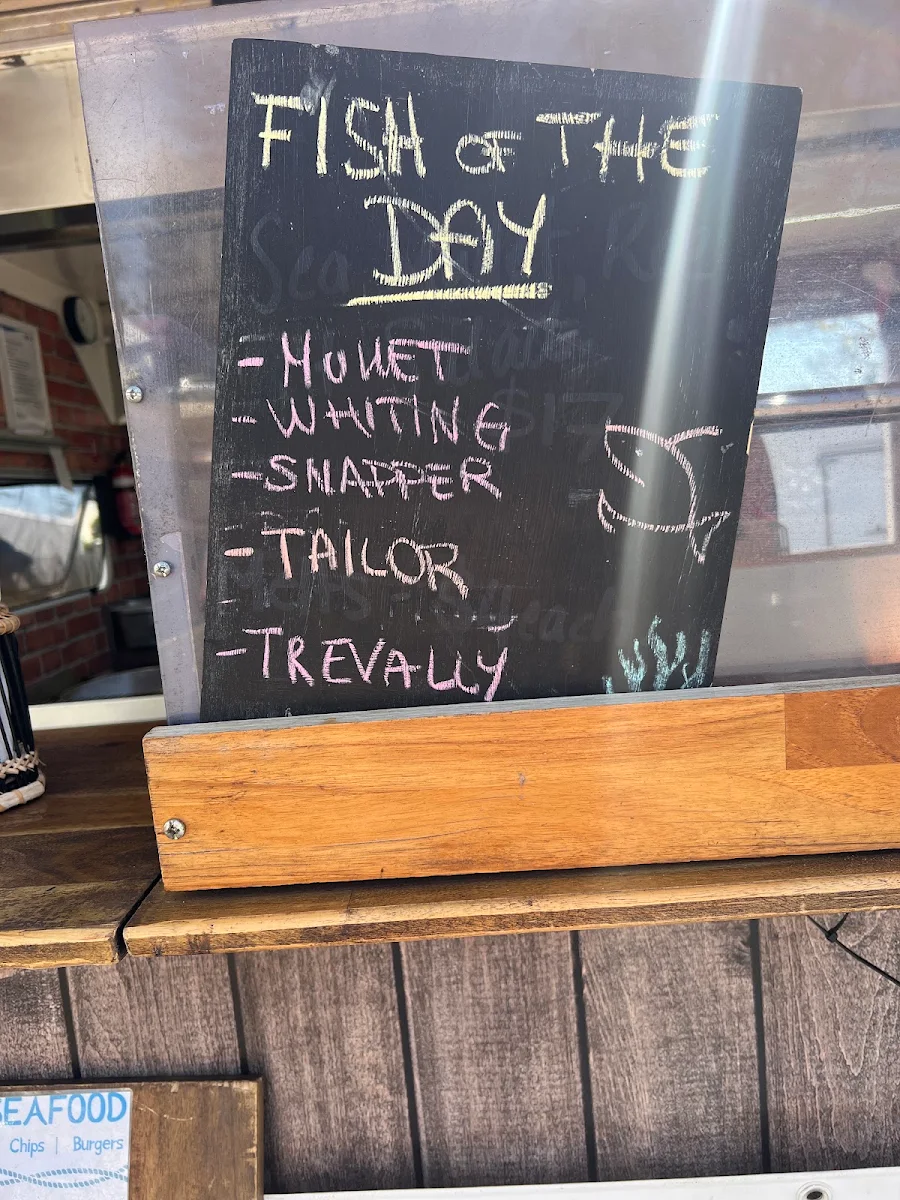 FISH OF THE
DAY
- MULLET
- WHITING
- SNAPPER
- TAILOR
- TREVALLY
$17
SEAFOOD
Chips | Burgers